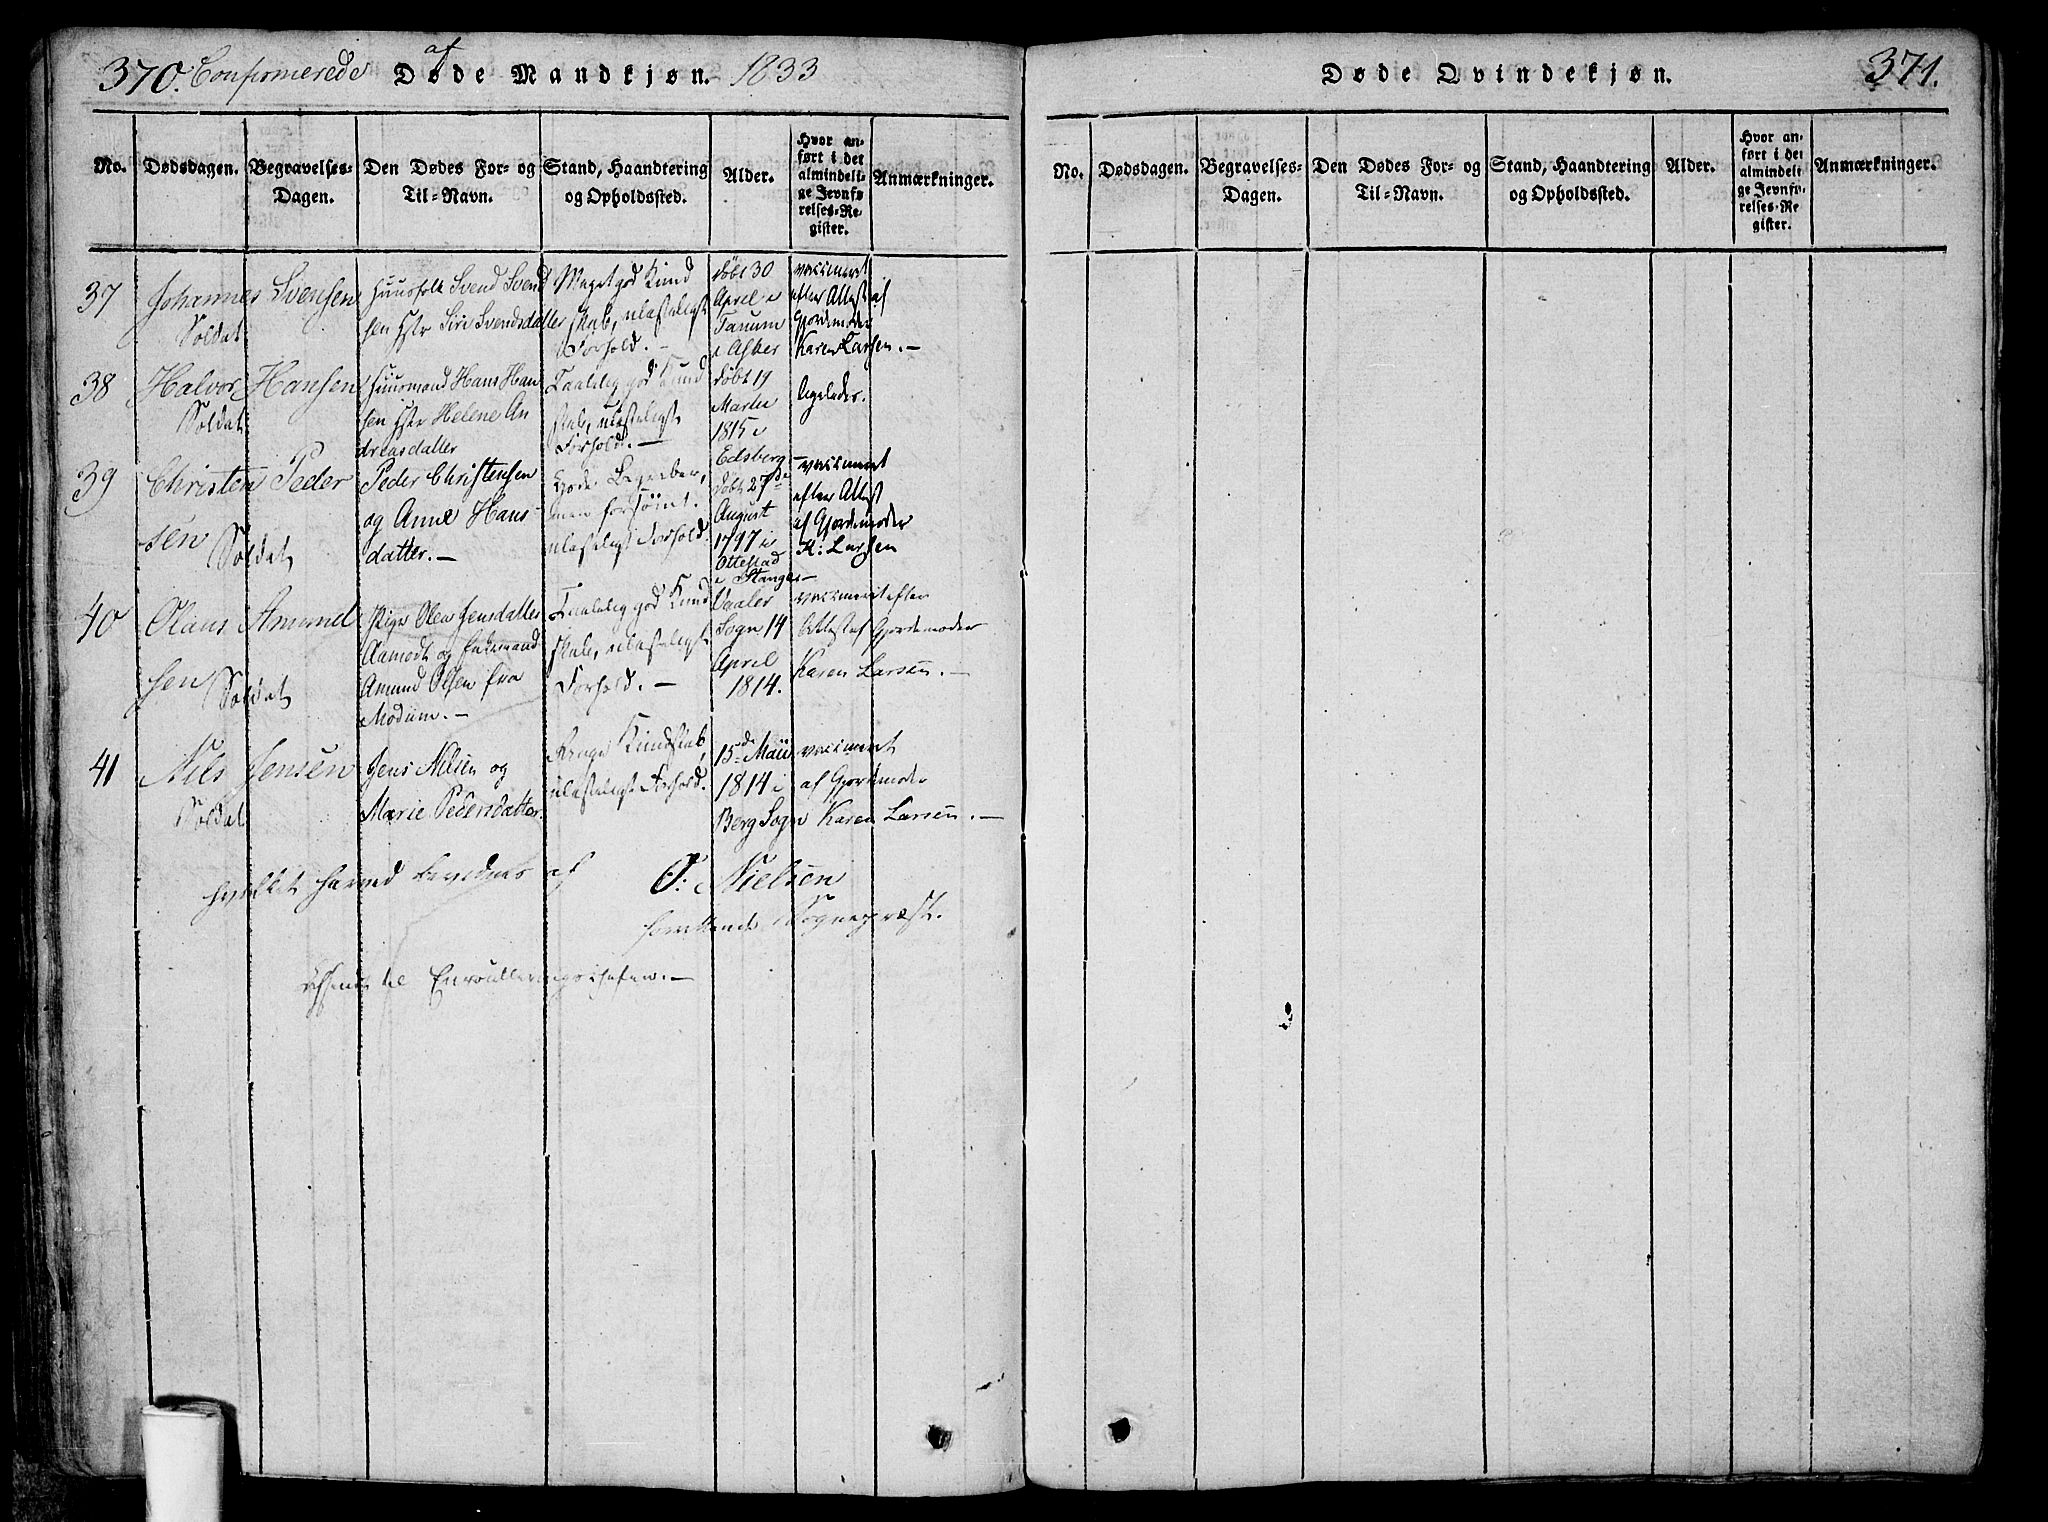 370. Confirmerede af Døde Mandkjøn. 1833
No. Dødsdagen. Begravelses-Dagen. Den Dødes For- og Til-Navn. Stand, Haandtering og Opholdssted. Alder. Hvor anført i det almindelige Jevnførelses-Register. Anmærkninger.
37 Johannes Svensen
Soldat
Huusfolk Svend Svend
sen hstr Siri Svendsdatter
Meget god Kund
skab, ulasteligt
Forhold. —
døbt 30
April i
Tanum
i Asker
vaccineret
efter Attest af
Gjordemoder
Karen Larsen. —
38 Halvor Hansen
Soldat
Huusmand Hans Han
sen hstr Helene An
dreasdatter
Taalelig god Kund
skab, ulasteligt
Forhold. —
døbt 19
Martii
1815 i
Edsberg
ligeledes.
39 Christen Peder
sen Soldat
Peder Christensen
og Anne Hans
datter. —
Gode Begreber,
men forsömt.
ulasteligt Forhold.
døbt 27de
August
1797 i
Ottestad
i Stange
vaccineret
efter Attest
af Gjordemoder
K: Larsen
40 Olaus Amund
sen Soldat
Pige Olea Jensdatter
Aamodt og
Amund Olsen fra
Modum. —
Taalelig god Kund
skab, ulasteligt
Forhold. —
Vaaler
Sogn 14
April
1814.
vaccineret efter
Attest af Gjordemoder
Karen Larsen. —
41 Nils Jensen
Soldat
Jens Nilsen og
Marie Pedersdatter.
Kundskab,
ulasteligt Forhold.
15de Maii
1814 i
Berg Sogn
vaccineret
af Gjordemoder
Karen Larsen. —
hvilket herved bevidnes af
O: Nielsen
Sognepræst.
til Enroulleringschefen. —
Døde Qvindekjøn. 371.
No. Dødsdagen. Begravelses-Dagen. Den Dødes For- og Til-Navn. Stand, Haandtering og Opholdssted. Alder. Hvor anført i det almindelige Jevnførelses-Register. Anmærkninger.